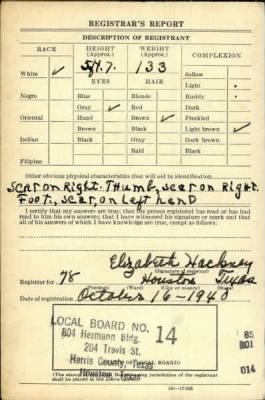 REGISTRAR'S REPORT
DESCRIPTION OF REGISTRANT
RACE HEIGHT (Approx.) WEIGHT (Approx.) COMPLEXION
White ✓ 5ft. 7. 133 Sallow
EYES HAIR Light
Negro Blue Blonde Ruddy
Gray ✓ Red Dark
Oriental Hazel Brown ✓ Freckled
Brown Black Light brown ✓
Indian Black Gray Dark brown
Bald Black
Filipino
Other obvious physical characteristics that will aid in identification
Scar on Right. Thumb, scar on Right.
Foot., scar, on Left hand
I certify that my answers are true; that the person registered has read or has had
read to him his own answers; that I have witnessed his signature or mark and that
all of his answers of which I have knowledge are true, except as follows:
Elizabeth Hackney
(Signature of registrar)
Registrar for 78 Houston Texas
(Precinct) (Ward) (City or county) (State)
Date of registration October 16-1940
LOCAL BOARD NO. 14
804 Hermann Bldg.
204 Travis St.
Harris County, Texas
Houston, Texas
85
201
014
OF LOCAL BOARD)
(The stamp of the Local Board having jurisdiction of the registrant
shall be placed in the above space)